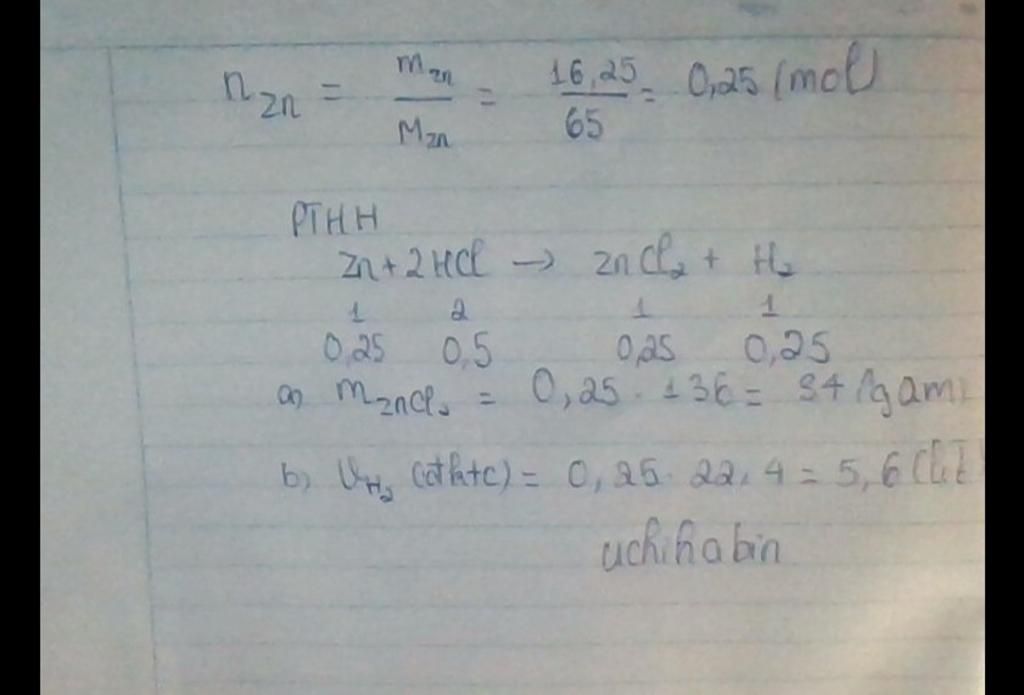 n Zn = m Zn / M Zn = 16,25 / 65 = 0,25 (mol)
PTHH
Zn + 2HCl → ZnCl₂ + H₂
1 2 1 1
0,25 0,5 0,25 0,25
a) m ZnCl₂ = 0,25 . 136 = 34 (gam)
b) V H₂ (đktc) = 0,25 . 22,4 = 5,6 (lít
uchihabin